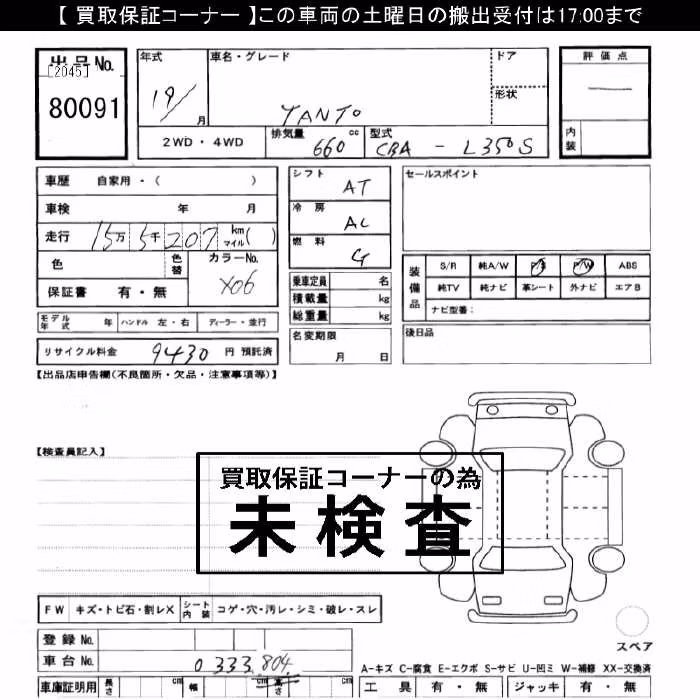 【 買取保証コーナー 】この車両の土曜日の搬出受付は17:00まで
出品No.
[2045]
80091
年式
19/ 月
車名・グレード
TANTO
ドア
形状
2WD・4WD
排気量 660 cc
型式 CBA - L350S
評価点
内装
車歴 自家用・( )
車検 年 月
走行 15万 5千 207 km マイル( )
色
色替
カラーNo. X06
保証書 有・無
シフト AT
冷房 AC
燃料 G
乗車定員 名
積載量 kg
総重量 kg
セールスポイント
装備品
S/R 純A/W P/S P/W ABS
純TV 純ナビ 革シート 外ナビ エアB
ナビ型番:
モデル年式 年 ハンドル 左・右 ディーラー・並行
リサイクル料金 9430 円 預託済
名変期限
月 日
後日品
【出品店申告欄(不良箇所・欠品・注意事項等)】
【検査員記入】
買取保証コーナーの為
未検査
FW キズ・トビ石・割レX シート内装 コゲ・穴・汚レ・シミ・破レ・スレ
登録No.
車台No. 0333804
車庫証明用 長さ cm 幅 cm 高さ cm
スペア
A-キズ C-腐食 E-エクボ S-サビ U-凹ミ W-補修 XX-交換済
工具 有・無 ジャッキ 有・無